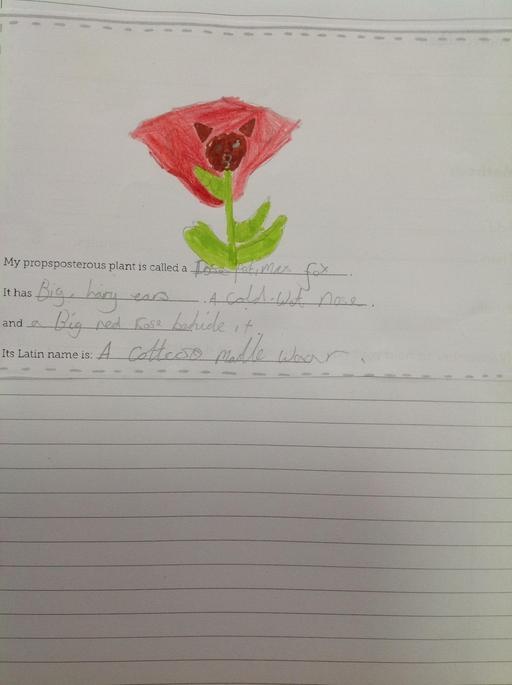 My propsposterous plant is called a Rose fox.
It has Big, hairy ears. A cold. Wet nose.
and a Big red Rose behide it
Its Latin name is: A